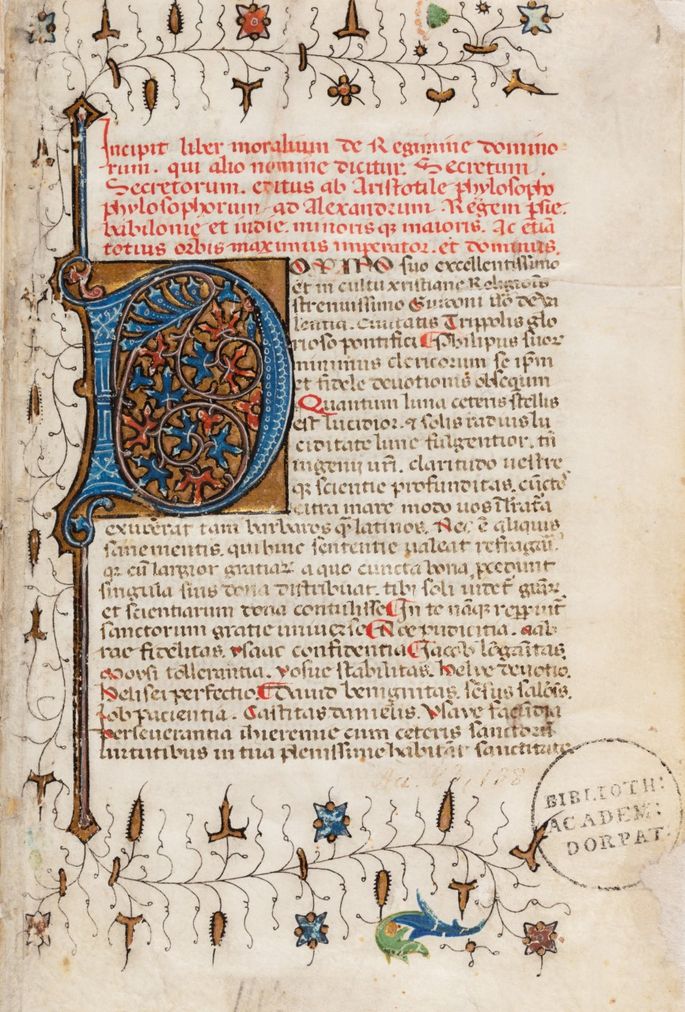 Incipit liber moralium de Regimine domino
rum. qui alio nomine dicitur. Secretum
Secretorum. editus ab Aristotile phylosopho
phylosophorum ad Alexandrum. Regem psie.
babilonie et indie. minoris qz maioris. Ac etiā
totius orbis maximus imperator. et dominus.
DOMINO suo excellentissimo
et in cultu xristiane Religionis
strenuissimo Guidoni
lentia. Civitatis Trippolis glo
rioso pontifici Philipus suor
minimus clericorum se ipm
et fidele devotionis obsequm
Quantum luna ceteris stellis
est lucidior. et solis radius lu
ciditate lune fulgentior. tm
ingenii vri. claritudo vestre
qz scientie profunditas. cuncto
citra mare modo vos
exuperat tam barbaros qz latinos. Nec ē aliquis
sane mentis. qui huic sententie valeat refragari.
qz cū largior gratiar a quo cuncta bona pcedunt
singula suis dona distribuat. tibi soli videt
et scientiarum dona contulisse In te namqz repperit
sanctorum gratie universe Noe pudicitia. Aab
rae fidelitas. ysaac confidentia Jacob
Moysi tollerantia. yosue stabilitas. Helye devotio.
Helisei perfectio David benignitas. sensus
Job paciencia. Castitas danielis. ysaye facūdia
Perseverantia iheremie cum ceteris sanctorū
virtutibus in tua plenissime habitāt sanctitate
BIBLIOTH:
ACADEM:
DORPAT.